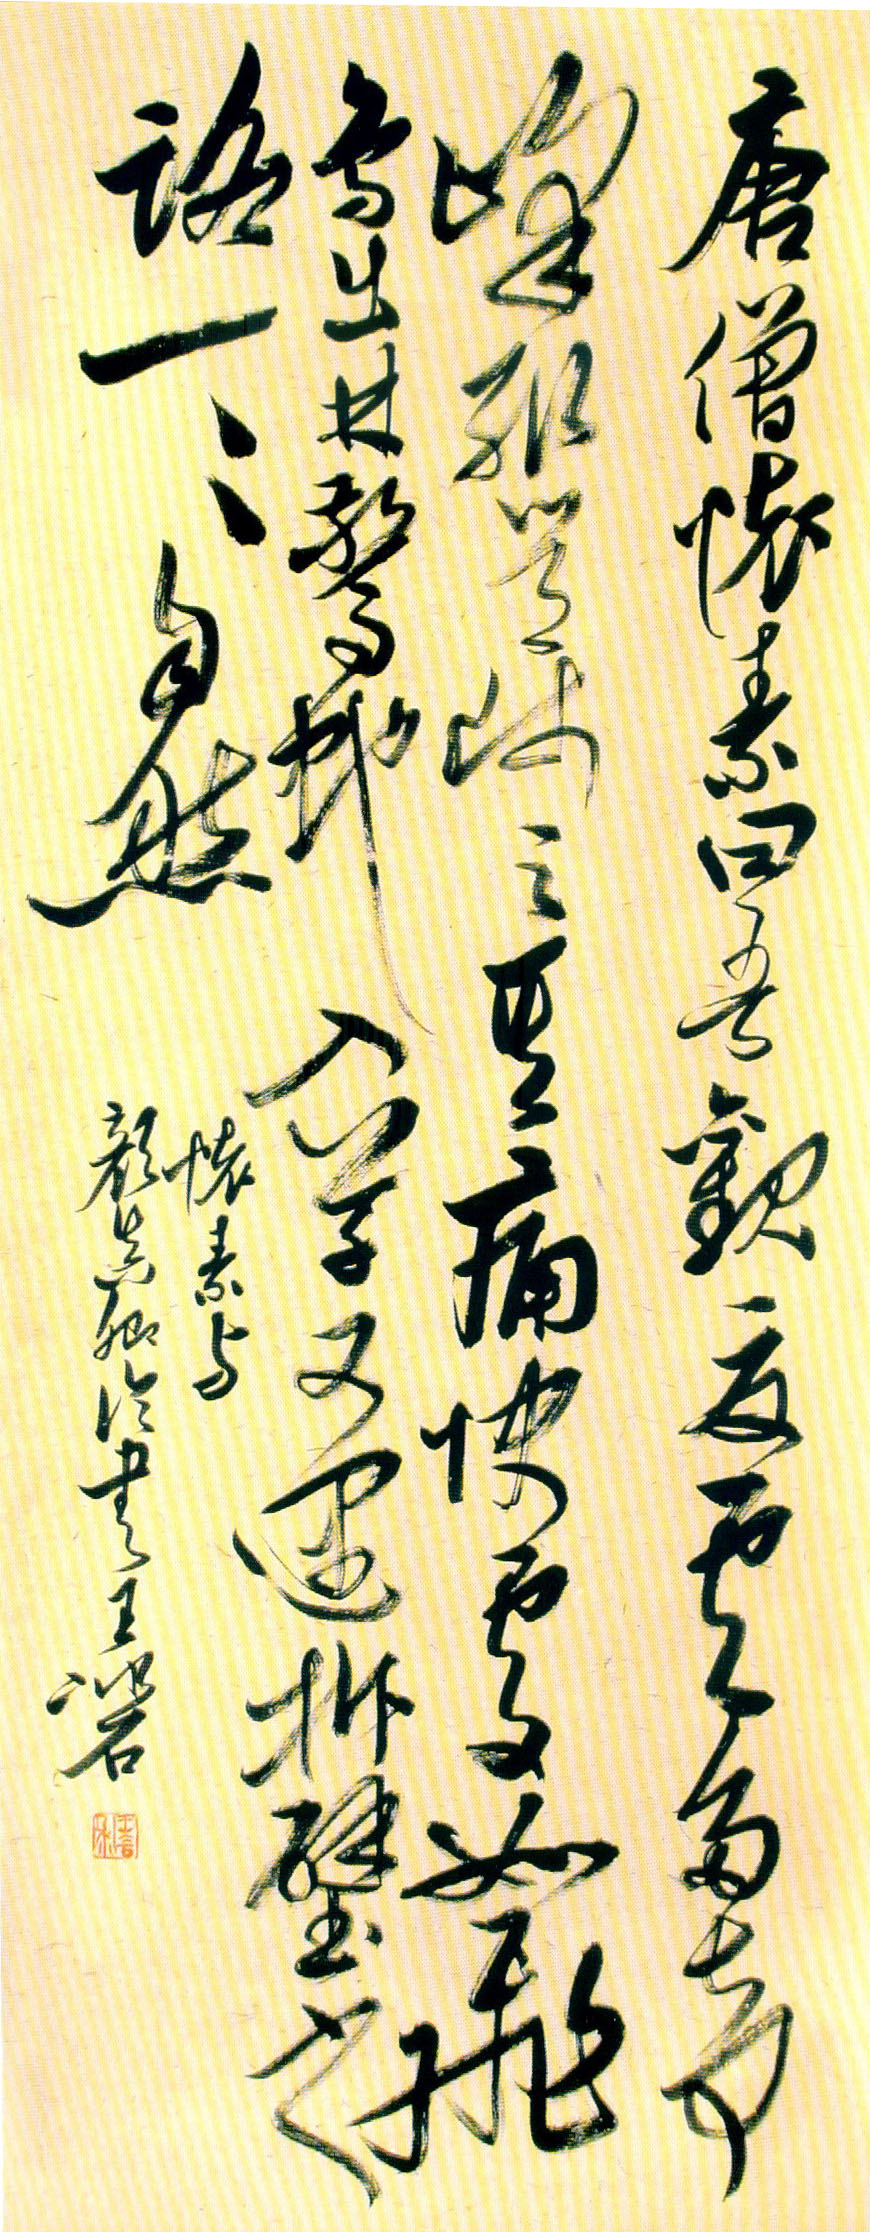 唐僧懷素曰吾觀夏雲多奇
峰輒常師之其痛快處如飛
鳥出林驚蛇入草又遇坼壁之
路一一自然
懷素与
顏真卿論書王